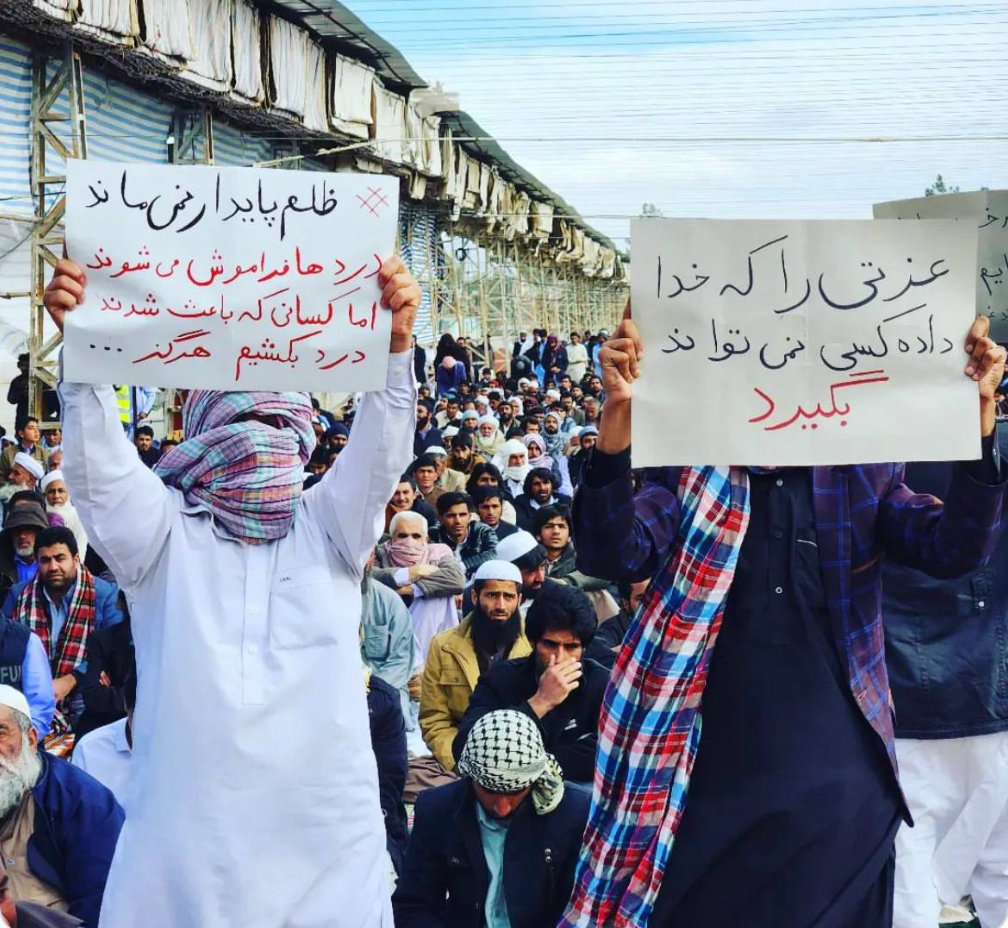 ظلم پایدار نمی ماند
درد ها فراموش می شوند
اما کسانی که باعث شدند
درد بکشیم هرگز ...
عزتی را که خدا
داده کسی نمی تواند
بگیرد